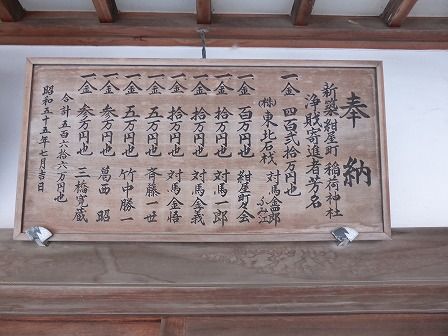 奉納
新築紺屋町稲荷神社
浄財寄進者芳名
一金 四百弐拾万円也
対馬金四郎
ふみ江
(株)東北石栈
一金 百万円也 紺屋町々会
一金 拾万円也 対馬一郎
一金 拾万円也 対馬孝義
一金 拾万円也 対馬金悟
一金 五万円也 斉藤一世
一金 五万円也 竹中勝一
一金 参万円也 葛西昭
一金 参万円也 三橋寛蔵
合計五百六拾六万円也
昭和五十五年七月吉日